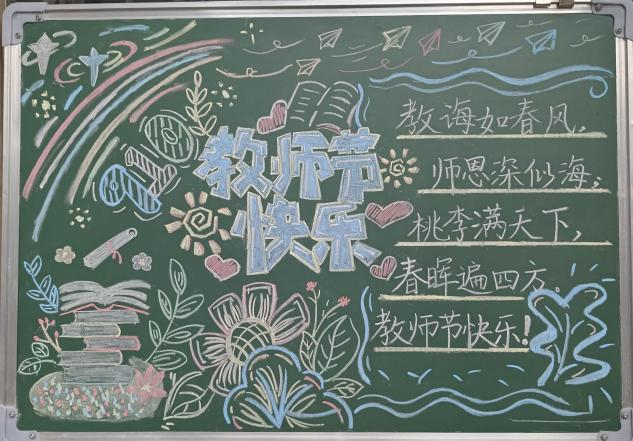 教师节
快乐
教诲如春风，
师恩深似海；
桃李满天下，
春晖遍四方。
教师节快乐！